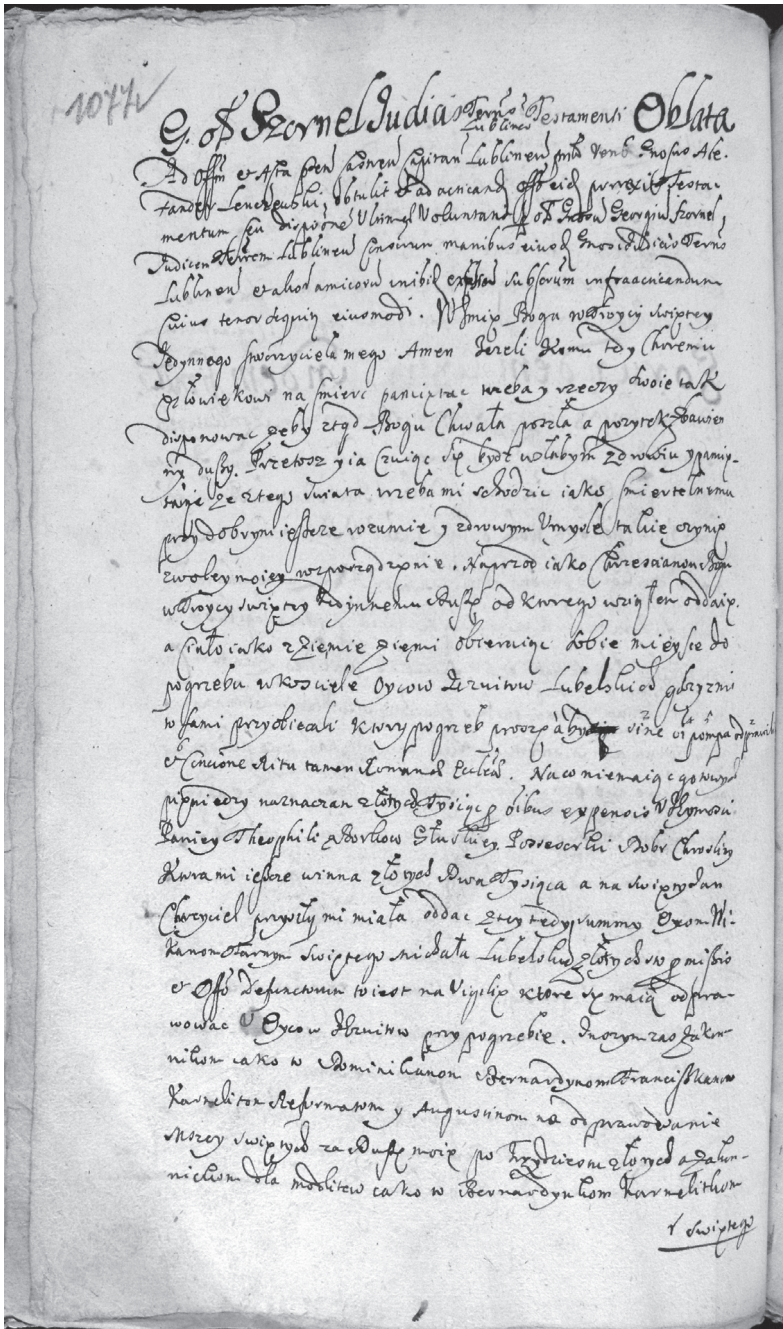 1077v
G. olim Szornel Judicis Terris Lublinen Testamenti Oblata
Ad Offm et Acta Castren Capitan Lublinen Gnosus Ale-
xander obtulit et ad acticand Offo eid porrexit Testa-
mentum seu disposne Ultimae Voluntatis olim Gnosi Georgii Szornel
Judicen Terrem Lublinen manibus eiusd Gnosi Judicis Terris
Lublinen et alior amicorum subscrum infraacticandum
Cuius tenor sequit eiusmodi. W Jmię Boga w Troycy swiętey
Jedynnego stworzyciela mego Amen Jezeli Komu tedy
człowiekowi na smierc pamiętac trzeba y rzeczy swoie tak
disponowac zeby ztąd Bogu Chwała poszła a pozytek zbawien
ny duszy. Przetosz y ia czuiąc się bydz w słabym zdrowiu y pamię-
taiąc ze z tego swiata trzeba mi schodzic iako smiertelnemu
przy dobrym ieszcze rozumie y zdrowym Umysle takie czynię
z woley moiey rozporządzenie. Naprzod iako Chrzescianin Bogu
w Troycy swiętey Jedynnemu Duszę od ktorego wziąłem oddaię.
a Ciało iako z Ziemie Ziemi obieraiąc sobie mieysce do
pogrzebu w kosciele Oycow Jezuitow Lubelskich gdzie mi
to sami przyobiecali ktory pogrzeb proszę aby sine pompa odprawili
et Concione Ritu tamen Romanae Eccliae. Na co nie maiąc gotowych
pieniędzy naznaczam złotych Tysiąc expensis U Jmosci
Paniey Theophili z Borkow Possesorki Dobr
Kura mi ieszcze winna złotych Dwa Tysiąca a na swięty Jan
Chrzciciel przyszły mi miała oddac z tey tedy summy Oycom Wi-
karom Farnym swiętego Michała Lubelskim złotych sto
et Offo Defunctorum to iest na Vigilie ktore się maią odpra-
wowac U Oycow Jezuitow przy pogrzebie. Jnszym zas Zakon-
nikom iako to Dominikanom Bernardynom Franciszkanom
Karmelitom Reformatom y Augustinom na odprawowanie
Mszey swiętych za Duszę moię po Trzydziesci złotych a Zakon-
niczkom dla modlitew iako to Bernardynkom Karmelitkom
swiętego